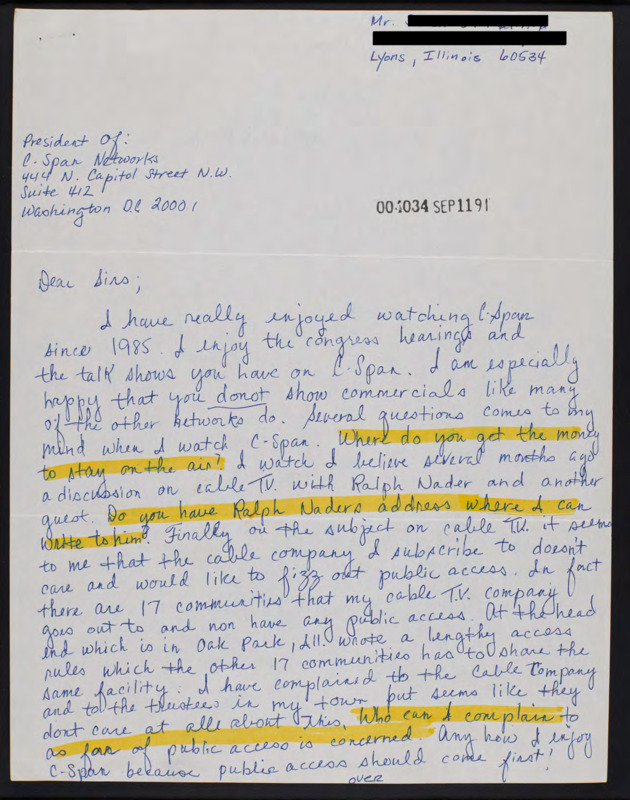 Mr.
Lyons, Illinois 60534
President Of:
C-Span Networks
444 N. Capitol Street N.W.
Suite 412
Washington DC 20001
004034 SEP1191
Dear Sirs;
I have really enjoyed watching C-Span
since 1985. I enjoy the congress hearings and
the talk shows you have on C-Span. I am especially
happy that you donot show commercials like many
of the other networks do. Several questions comes to my
mind when I watch C-Span. Where do you get the money
to stay on the air? I watch I believe several months ago
a discussion on cable TV. with Ralph Nader and another
guest. Do you have Ralph Naders address where I can
write to him? Finally on the subject on cable TV. it seems
to me that the cable company I subscribe to doesn't
care and would like to fizz out public access. In fact
there are 17 communities that my cable T.V. company
goes out to and non have any public access. At the head
end which is in Oak Park, Ill. wrote a lengthy access
rules which the other 17 communities has to share the
same facility. I have complained to the Cable Company
and to the trustees in my town but seems like they
dont care at alle about this. Who can I complain to
as far of public access is concerned. Any how I enjoy
C-Span because public access should come first!
over